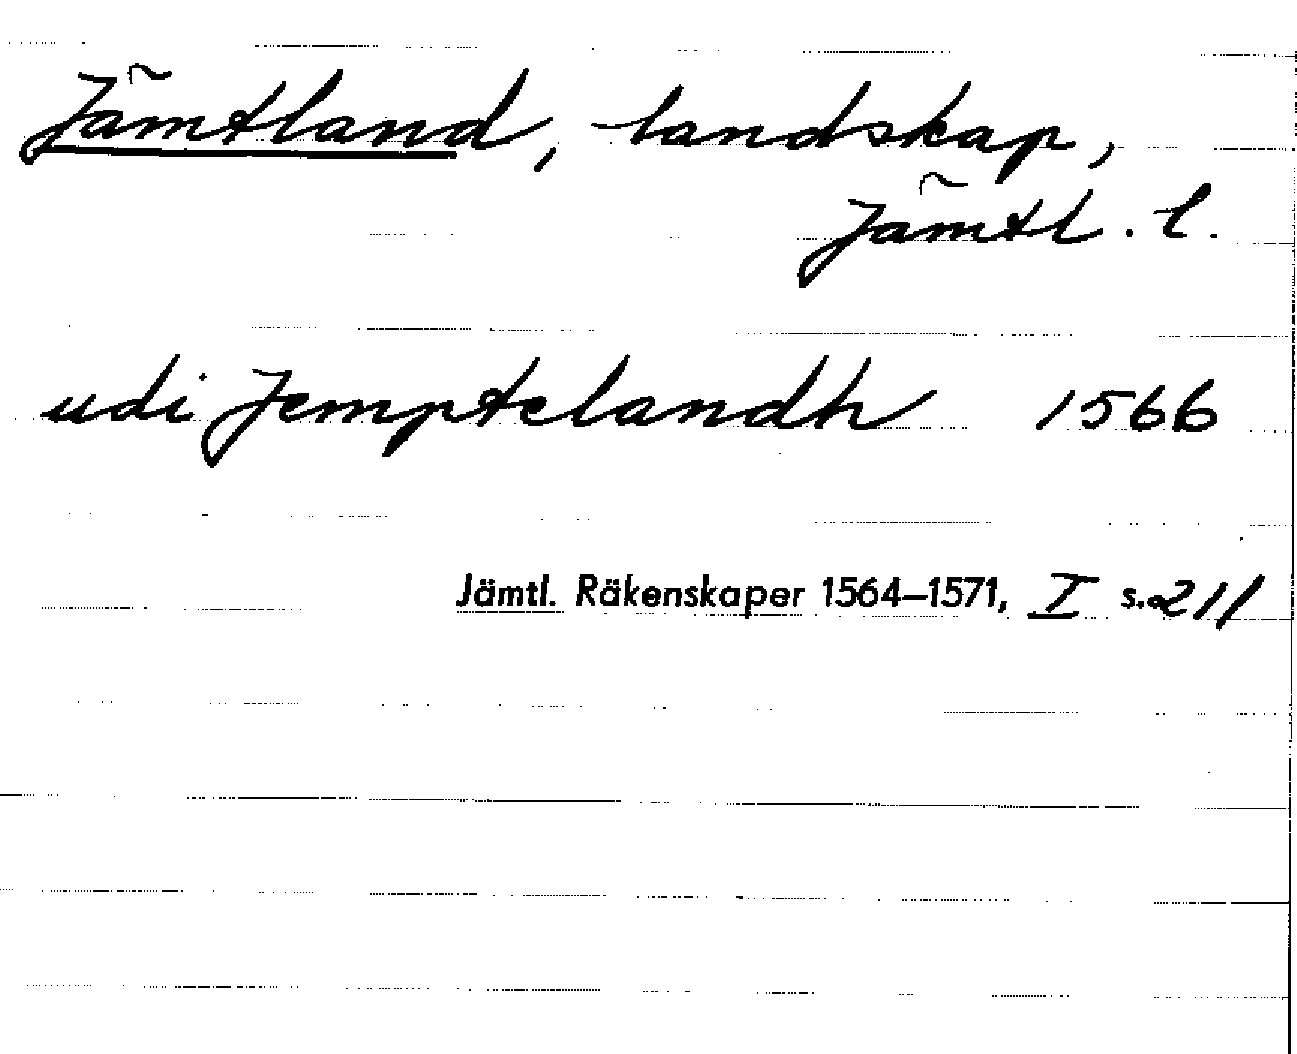 Jämtland, landskap,
Jämtl. l.
udi Jemptelandh 1566
Jämtl. Räkenskaper 1564–1571, I s. 211